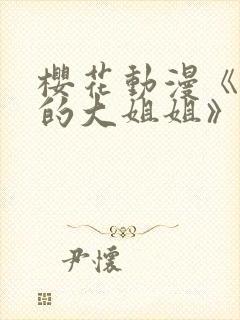 櫻花動漫《
的大姐姐》
尹懷